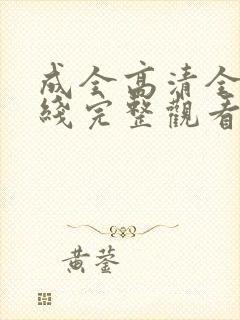 成全高清全
綫完整觀看
黄蓥